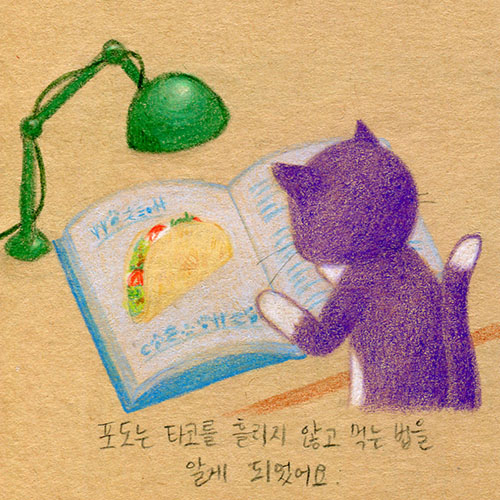 포도는 타코를 흘리지 않고 먹는 법을
알게 되었어요.